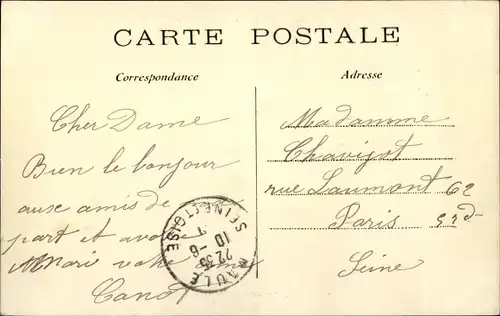 CARTE POSTALE
Correspondance
Adresse
Cher Dame
Bien le bonjour
ause amis de
part et avous
Mari votre
Canot
Madamme
Chavigot
rue Laumont 62
Paris
Seine
MAULE
SEINE-ET-OISE
22 35
10 -6